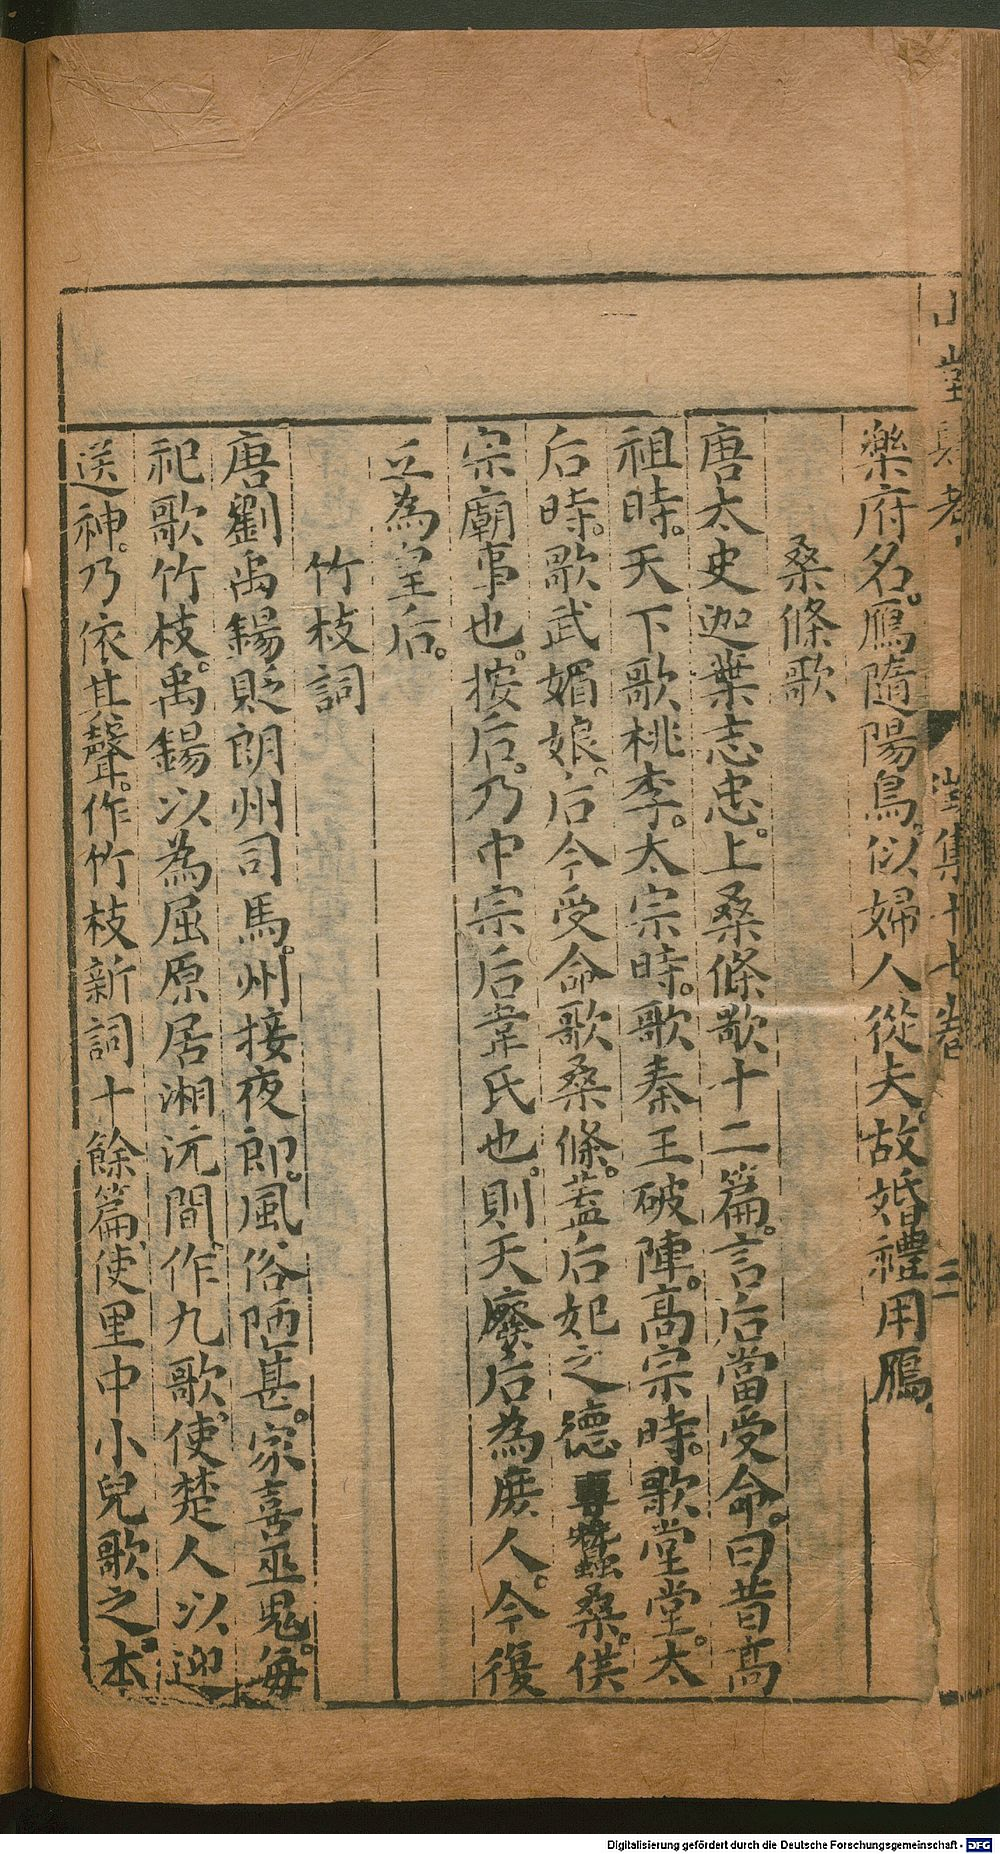 山堂肆考
徵集十七卷
三
樂府名。鴈隨陽鳥。似婦人從夫。故婚禮用鴈。
桑條歌
唐太史迦葉志忠。上桑條歌十二篇。言后當受命。曰昔高
祖時。天下歌桃李。太宗時。歌秦王破陣。高宗時。歌堂堂。太
后時。歌武媚娘。后今受命歌桑條。蓋后妃之德專蠶桑。供
宗廟事也。按后。乃中宗后韋氏也。則天廢后為庶人。今復
立為皇后。
竹枝詞
唐劉禹錫貶朗州司馬。州接夜郎。風俗陋甚。家喜巫鬼。每
祀歌竹枝。禹錫以為屈原居湘沅間。作九歌。使楚人以迎
送神。乃依其聲。作竹枝新詞十餘篇。使里中小兒歌之。本
Digitalisierung gefördert durch die Deutsche Forschungsgemeinschaft - DFG